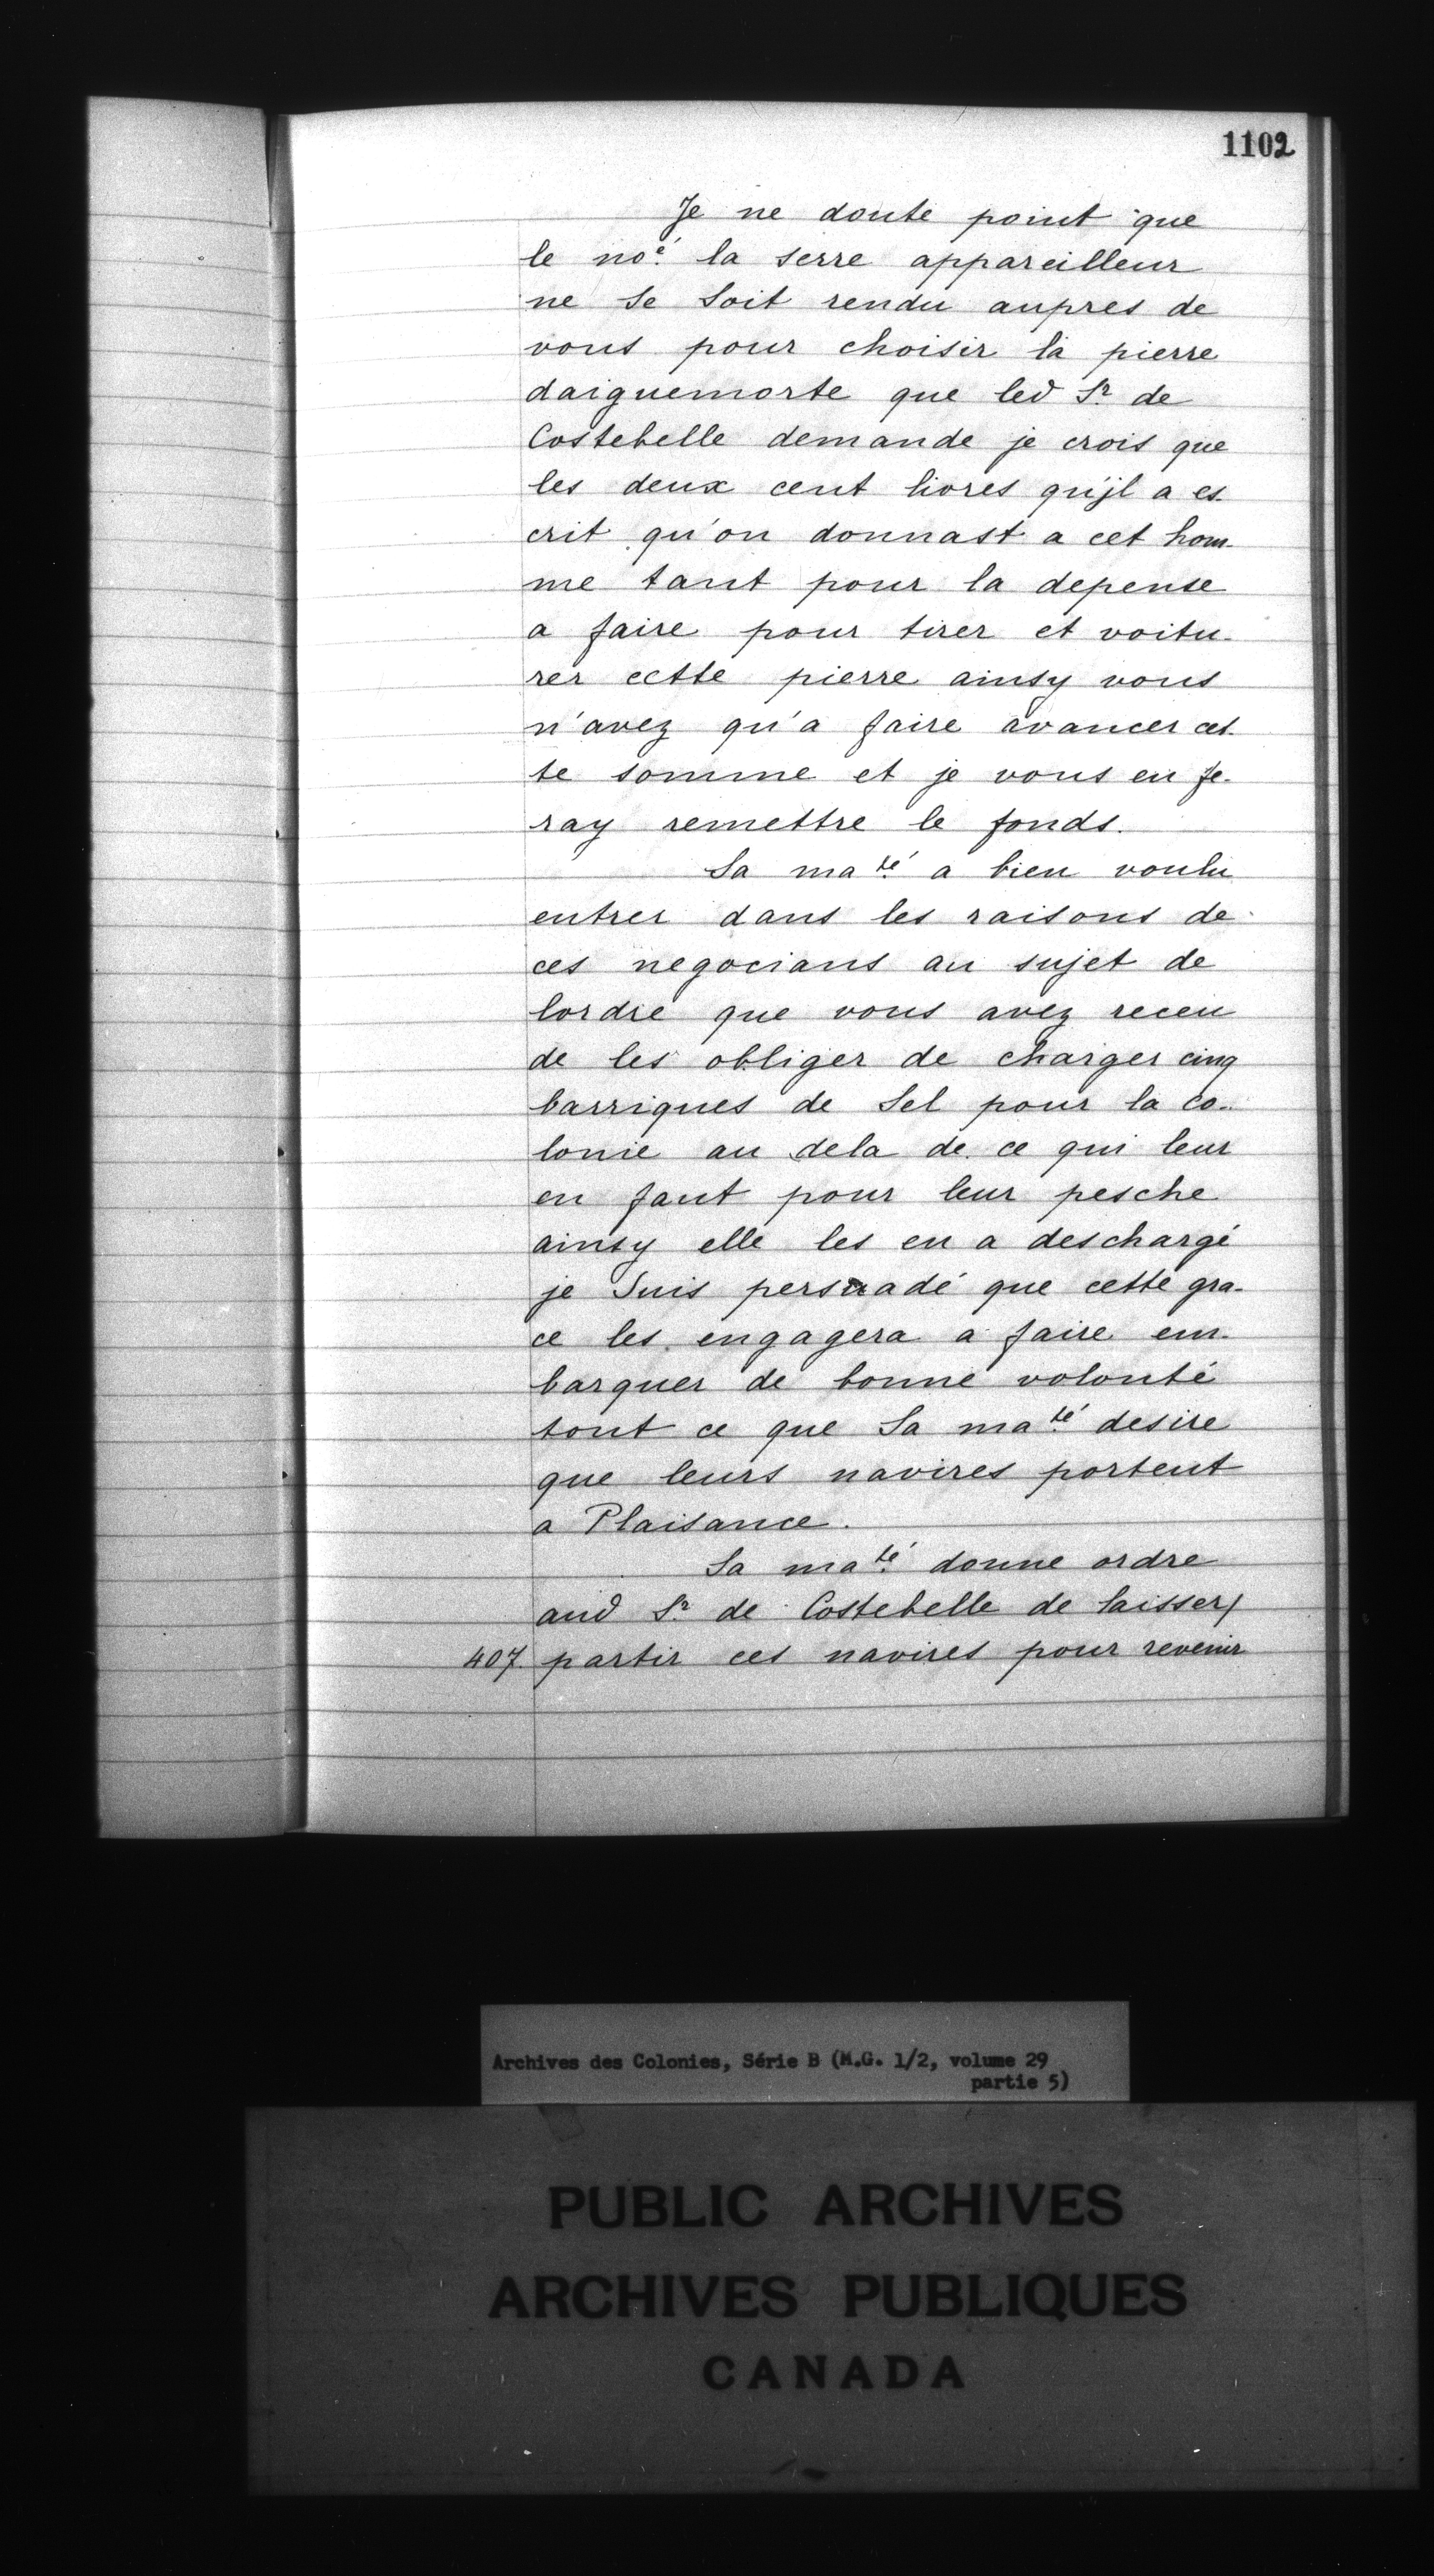 1102
Je ne doute point que
le no.é la serre appareilleur
ne se soit rendu aupres de
vous pour choisir la pierre
daiguemorte que led Sr. de
Costebelle demande je crois que
les deux cent livres qu'jl a es-
crit qu'on donnast a cet hom-
me tant pour la depense
a faire pour tirer et voitu-
rer cette pierre ainsy vous
n'avez qu'a faire avancer cet-
te somme et je vous en fe-
ray remettre le fonds.
Sa ma.té a bien voulu
entrer dans les raisons de
ces negocians au sujet de
lordre que vous avez receu
de les obliger de charger cinq
barriques de Sel pour la co-
lonie au dela de ce qui leur
en faut pour leur pesche
ainsy elle les en a deschargé
je Suis persuadé que cette gra-
ce les engagera a faire em-
barquer de bonne volonté
tout ce que Sa ma.té desire
que leurs navires portent
a Plaisance.
Sa ma.té donne ordre
aud Sr. de Costebelle de laisser/
407. partir ces navires pour revenir
Archives des Colonies, Série B (M.G. 1/2, volume 29
partie 5)
PUBLIC ARCHIVES
ARCHIVES PUBLIQUES
CANADA